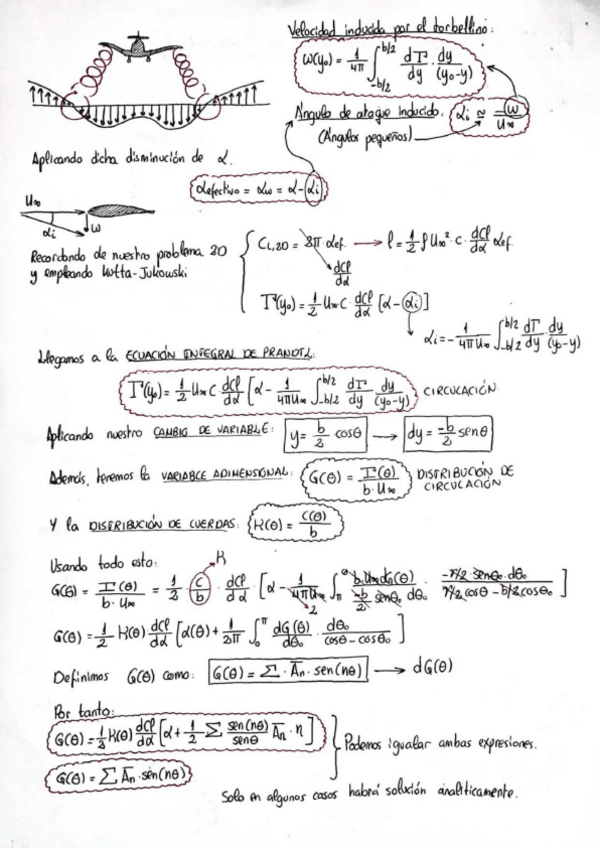 Velocidad inducida por el torbellino:
ω(y₀) = 1/4π ∫_{-b/2}^{b/2} dΓ/dy · dy/(y₀-y)
Ángulo de ataque inducido. αi ≃ -ω/U∞
(Ángulos pequeños)
Aplicando dicha disminución de α.
αefectivo = αω = α-αi
U∞
αi ω
Recordando de nuestro problema 2D
y empleando Kutta-Jukowski
CL,2D = 2π·αef. → l = 1/2 ρ U∞² · c · dCl/dα αef
dCl/dα
Γ(y₀) = 1/2 U∞ C · dCl/dα [α-αi]
αi = - 1/4πU∞ ∫_{-b/2}^{b/2} dΓ/dy · dy/(y₀-y)
Llegamos a la ECUACIÓN INTEGRAL DE PRANDTL:
Γ(y₀) = 1/2 U∞ C · dCl/dα [α - 1/4πU∞ ∫_{-b/2}^{b/2} dΓ/dy · dy/(y₀-y) CIRCULACIÓN
Aplicando nuestro CAMBIO DE VARIABLE: y = b/2 cosθ → dy = -b/2 senθ
Además, tenemos la VARIABLE ADIMENSIONAL: G(θ) = Γ(θ)/b·U∞ DISTRIBUCIÓN DE CIRCULACIÓN
Y la DISTRIBUCIÓN DE CUERDAS: K(θ) = C(θ)/b
Usando todo esto: K
G(θ) = Γ(θ)/b·U∞ = 1/2 · c/b · dCl/dα · [α - 1/4πU∞ ∫_π^0 b·U∞dG(θ)/-b/2 senθ₀ dθ₀ · -b/2 senθ₀ dθ₀/b/2 cosθ - b/2 cosθ₀ ]
2
G(θ) = 1/2 K(θ) dCl/dα [α(θ) + 1/2π ∫_0^π dG(θ)/dθ₀ · dθ₀/cosθ - cosθ₀ ]
Definimos G(θ) como: G(θ) = Σ · Ān · sen(nθ) → dG(θ)
Por tanto:
G(θ) = 1/2 K(θ) dCl/dα [α + 1/2 Σ sen(nθ)/senθ Ān · n ]
Podemos igualar ambas expresiones.
G(θ) = Σ Ān · sen(nθ)
Solo en algunos casos habrá solución analíticamente.